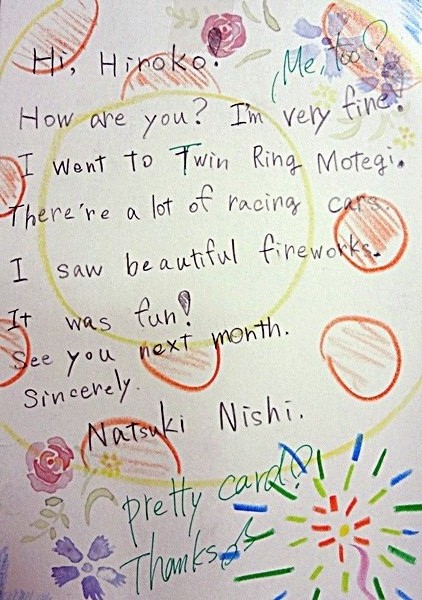 Hi, Hiroko!
Me, too?
How are you? I'm very fine!
I went to Twin Ring Motegi.
There're a lot of racing cars.
I saw beautiful fireworks.
It was fun!
See you next month.
Sincerely.
Natsuki Nishi.
pretty card!
Thanks